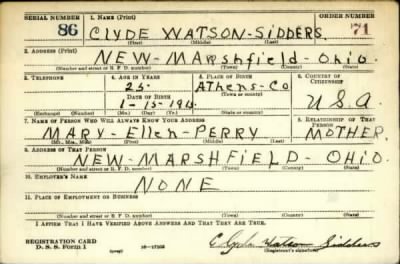 SERIAL NUMBER 1. NAME (Print) ORDER NUMBER
86 CLYDE WATSON-SIDDERS. 71
(First) (Middle) (Last)
2. ADDRESS (Print)
NEW-MARSHFIELD-OHIO.
(Number and street or R. F. D. number) (Town) (County) (State)
3. TELEPHONE 4. AGE IN YEARS 5. PLACE OF BIRTH 6. COUNTRY OF CITIZENSHIP
25 ATHENS-CO
DATE OF BIRTH (Town or county)
1-15- U.S.A
(Exchange) (Number) (Mo.) (Day) (Yr.) (State or country)
7. NAME OF PERSON WHO WILL ALWAYS KNOW YOUR ADDRESS 8. RELATIONSHIP OF THAT PERSON
MARY-ELLEN-PERRY MOTHER
(Mr., Mrs., Miss) (First) (Middle) (Last)
9. ADDRESS OF THAT PERSON
NEW-MARSHFIELD-OHIO.
(Number and street or R. F. D. number) (Town) (County) (State)
10. EMPLOYER'S NAME
NONE
11. PLACE OF EMPLOYMENT OR BUSINESS
(Number and street or R. F. D. number) (Town) (County) (State)
I AFFIRM THAT I HAVE VERIFIED ABOVE ANSWERS AND THAT THEY ARE TRUE.
REGISTRATION CARD Clyde Watson Sidders
D. S. S. Form 1 (over) (Registrant's signature)